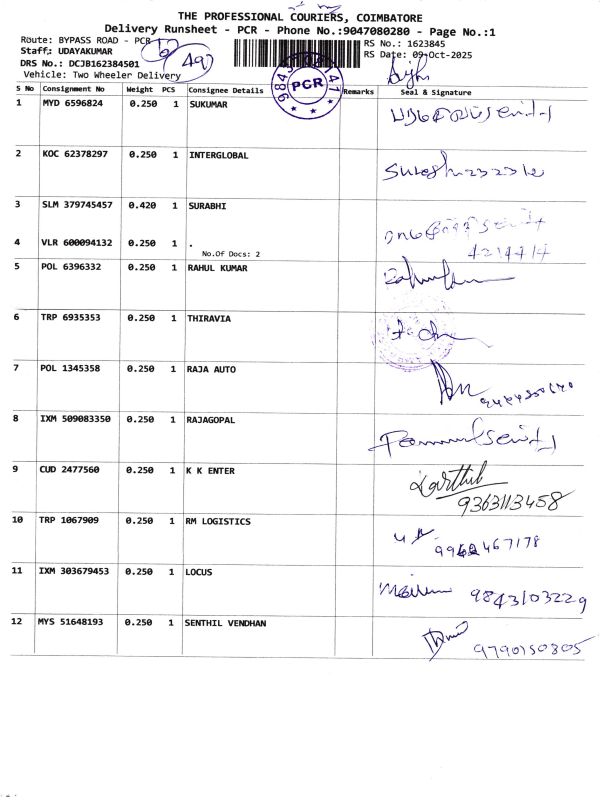 THE PROFESSIONAL COURIERS, COIMBATORE
Delivery Runsheet - PCR - Phone No.:9047080280 - Page No.:1
Route: BYPASS ROAD - PCR
RS No.: 1623845
Staff: UDAYAKUMAR
RS Date: 09-Oct-2025
DRS No.: DCJB162384501
497
Vehicle: Two Wheeler Delivery
PCR
S No Consignment No Weight PCS Consignee Details Remarks Seal & Signature
1 MYD 6596824 0.250 1 SUKUMAR
2 KOC 62378297 0.250 1 INTERGLOBAL
3 SLM 379745457 0.420 1 SURABHI
4 VLR 600094132 0.250 1 .
No.Of Docs: 2
5 POL 6396332 0.250 1 RAHUL KUMAR
6 TRP 6935353 0.250 1 THIRAVIA
7 POL 1345358 0.250 1 RAJA AUTO
8 IXM 509083350 0.250 1 RAJAGOPAL
9 CUD 2477560 0.250 1 K K ENTER Karthik
9363113458
10 TRP 1067909 0.250 1 RM LOGISTICS
9962467178
11 IXM 303679453 0.250 1 LOCUS 9843103229
12 MYS 51648193 0.250 1 SENTHIL VENDHAN
9790150305